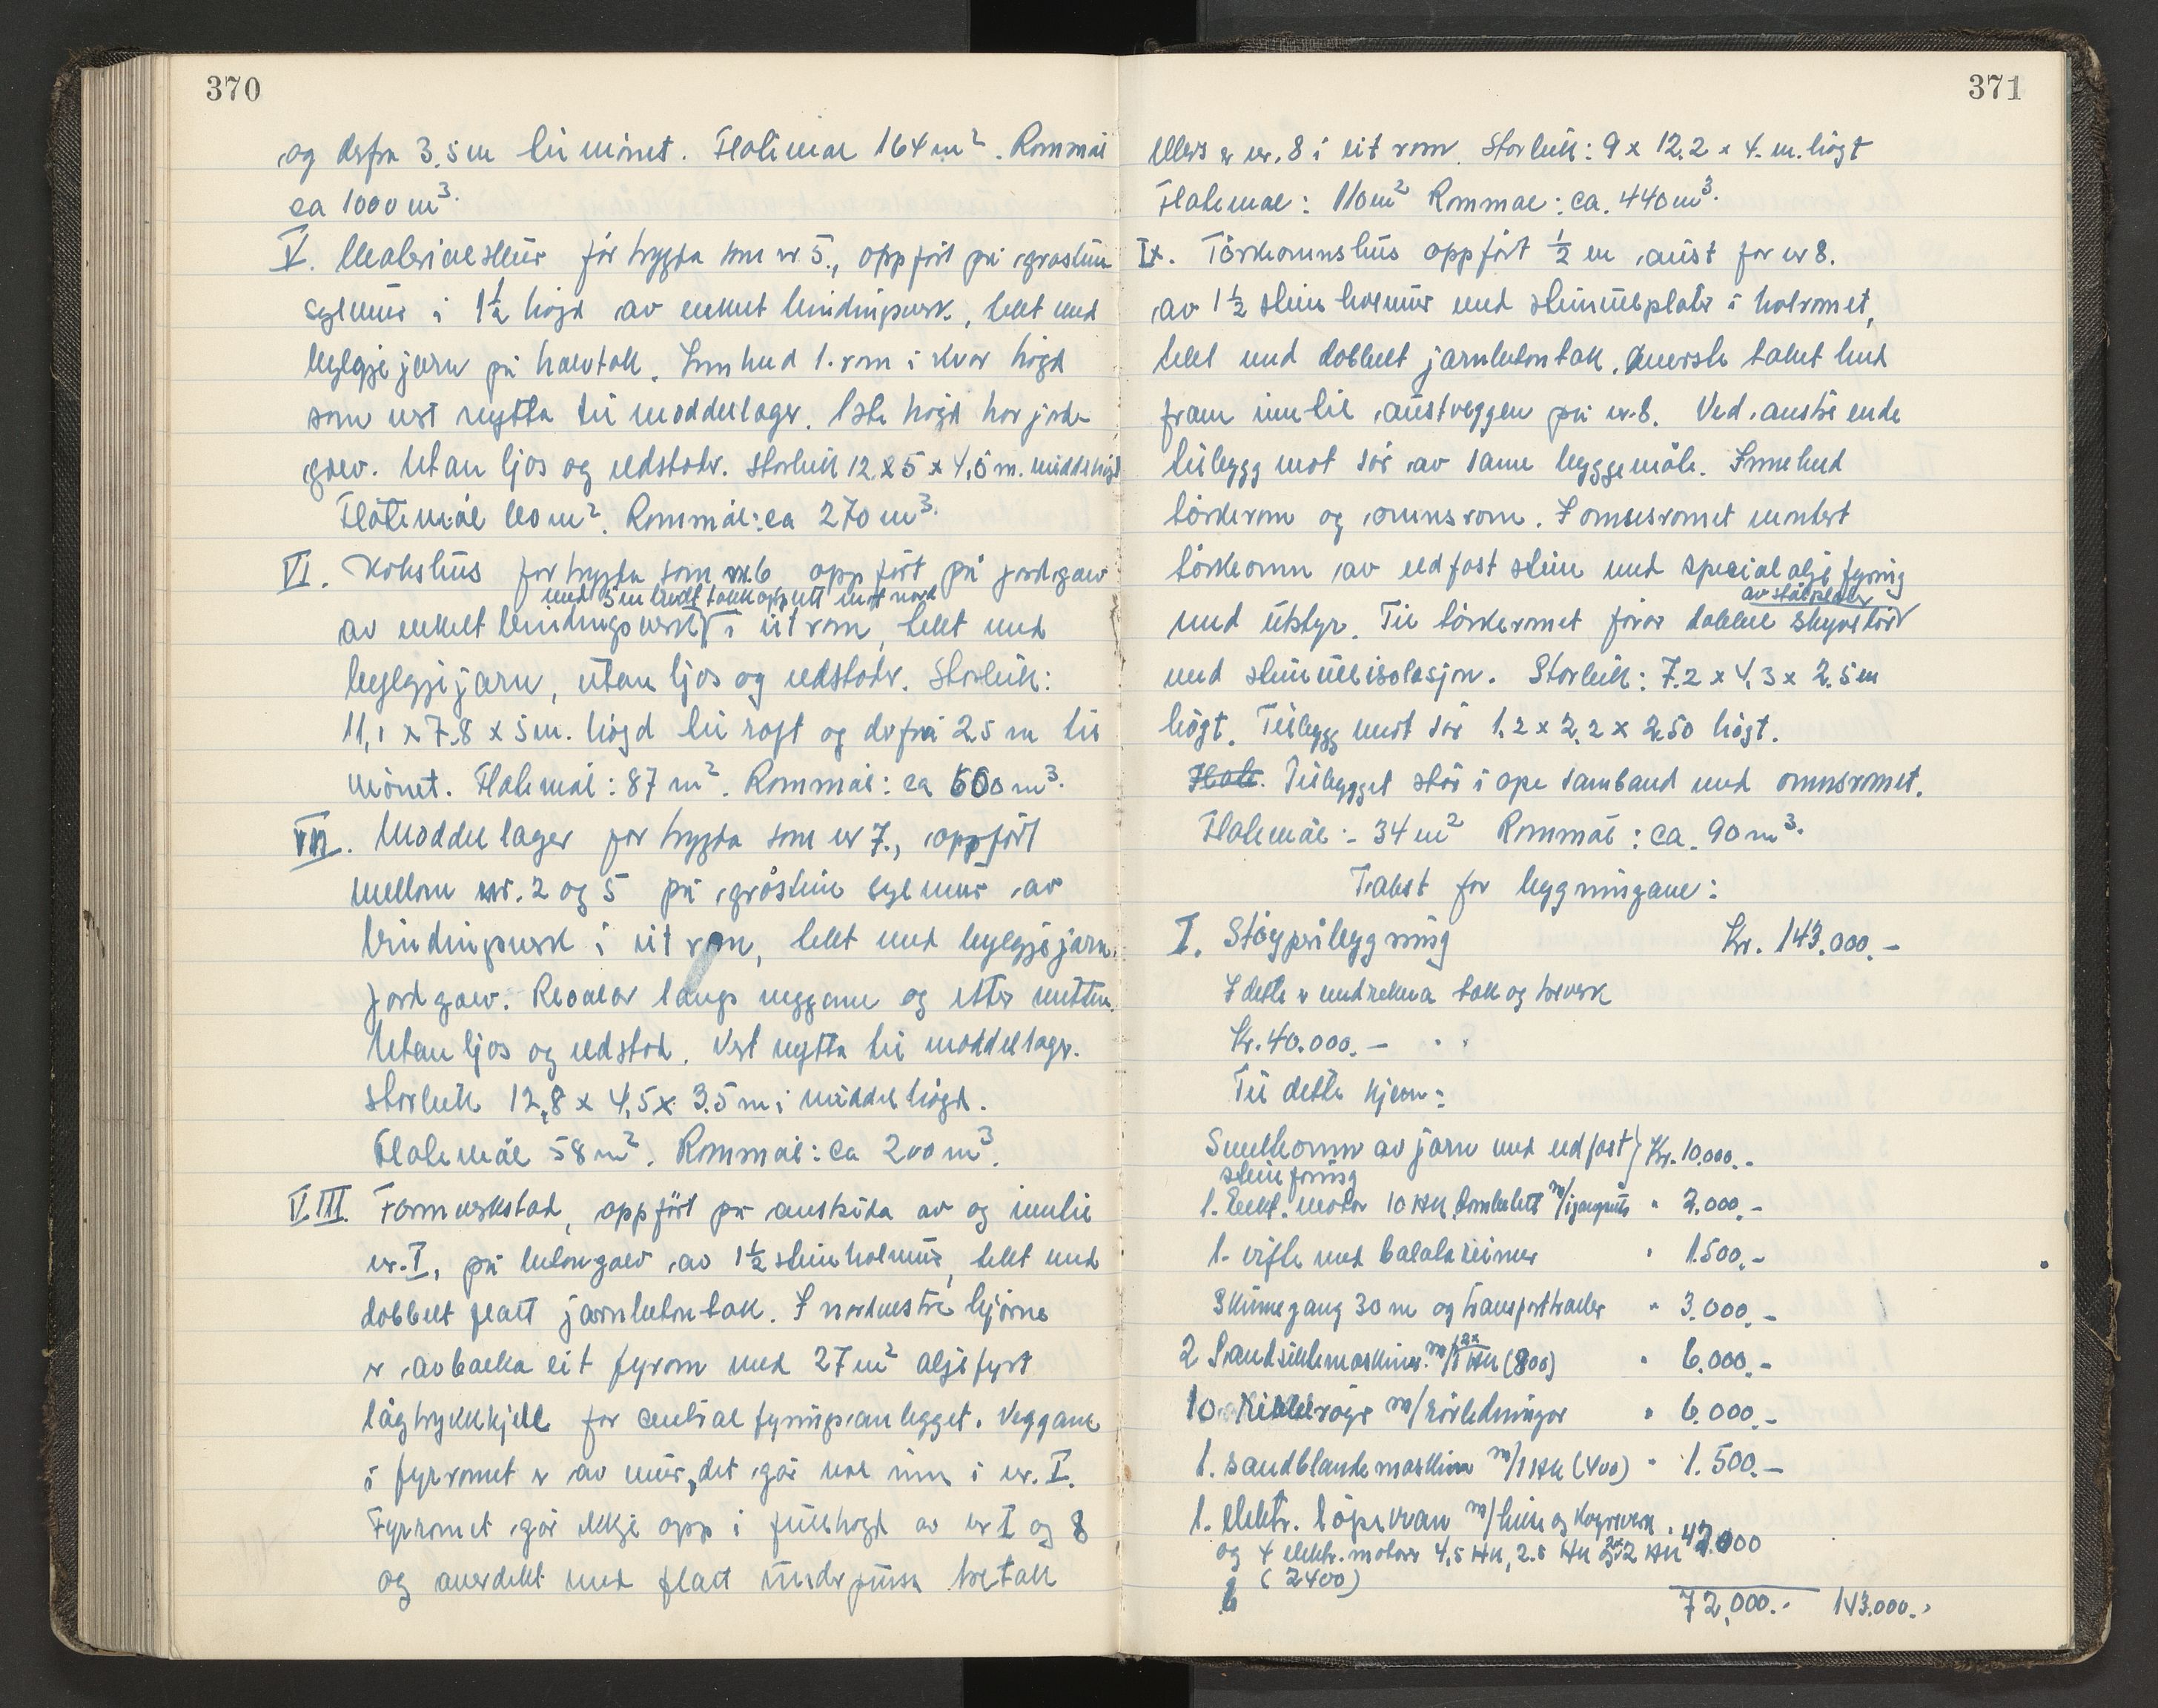 370
og derfra 3.5 m til mönet. Flatemål 164 m². Rommål
ca 1000 m³.
V. Materialskur før trygda som nr 5., oppfört på gråstein
sylmur i 1½ högd av enkelt bindingsverk, tekt med
bylgjejarn på halvtak. Innheld 1. rom i kvar högd
som vert nytta til modellager. 1ste högd har jord-
golv. Utan ljos og eldstader. Storleik 12 x 5 x 4,5 m. middelhögd
Flatemål 60 m². Rommål: ca 270 m³.
VI. Kokshus før trygda som nr. 6 oppfört på jordgolv
med 5 m bredt takoppsett mot nord
av enkelt bindingsverk i eit rom, tekt med
bylgjejarn, utan ljos og eldstader. Storleik:
11,1 x 7.8 x 5 m. högd til raft og derfrå 2.5 m til
mönet. Flatemål: 87 m². Rommål: ca 600 m³.
VII. Modellager før trygda som nr 7., oppfört
mellom nr. 2 og 5 på gråstein sylmur av
bindingsverk i eit rom, tekt med bylgjejarn.
Jordgolv. Reolar langs veggane og etter mitten.
Utan ljos og eldstad. Vert nytta til modellager.
Storleik 12,8 x 4,5 x 3.5 m i middelhögd.
Flatemål 58 m². Rommål: ca 200 m³.
VIII. Formverkstad, oppfört på austsida av og inntil
nr. I, på betongolv av 1½ stein holmur, tekt med
dobbelt flatt jarnbetontak. I nordvestre hjörne
er avbalka eit fyrrom med 27 m² oljefyrt
lågtrykkkjell for sentralfyringsanlegget. Veggane
i fyrromet er av mur, det går noe inn i nr. I.
Fyrromet går ikkje opp i full högd av nr I og 8
og overdekt med flatt underpussa tretak
371
Ellers er nr. 8 i eit rom. Storleik: 9 x 12.2 x 4. m. högt
Flatemål: 110 m² Rommål: ca. 440 m³.
IX. Törkeomnshus oppfört ½ m aust for nr 8.
av 1½ stein holmur med steinullplater i holromet,
tekt med dobbelt jarnbetontak. Överste taket held
fram inntil austveggen på nr. 8. Ved austre ende
tilbygg mot sör av same byggemåte. Inneheld
törkerom og omnsrom. I omnsromet montert
törkeomn av eldfast stein med special oljefyring
av stålplater
med utstyr. Til törkeromet förer dobbel skyvedör
med steinullisolasjon. Storleik: 7.2 x 4.3 x 2.5 m
högt. Tilbygg mot sör 1.2 x 2.2 x 2.50 högt.
Flate. Tilbygget står i ope samband med omnsromet.
Flatemål: 34 m² Rommål: ca. 90 m³.
Takst for bygningane:
I. Stöyperibygning Kr. 143.000.-
I dette er medrekna tak og treverk
Kr. 40.000.-
Til dette kjem:
Smelteomn av jarn med eldfast } Kr. 10.000.-
steinforing
1. Elekt. motor 10 HK komplett m/igangsett. " 2.000.-
1. vifte med balata reimer " 1.500.-
Skinnegang 30 m og transporttraller " 3.000.-
2 Sandsiktemaskiner m/2x1 HK (800) " 6.000.-
10. m/rörledningar " 6.000.-
1. sandblandemaskin m/1 HK (400) " 1.500.-
1. elektr. löpekran m/heise og köyreverk
og 4 elektr. motorer 4,5 HK, 2.5 HK og 2x2 HK 42.000
(2400)
72,000.- 143.000.-